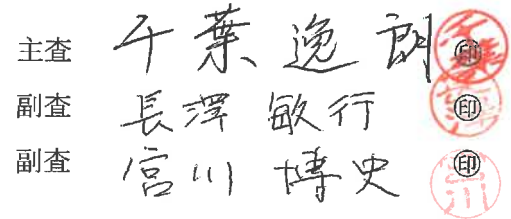 主査 千葉逸朗 ㊞
副査 長澤敏行 ㊞
副査 宮川博史 ㊞